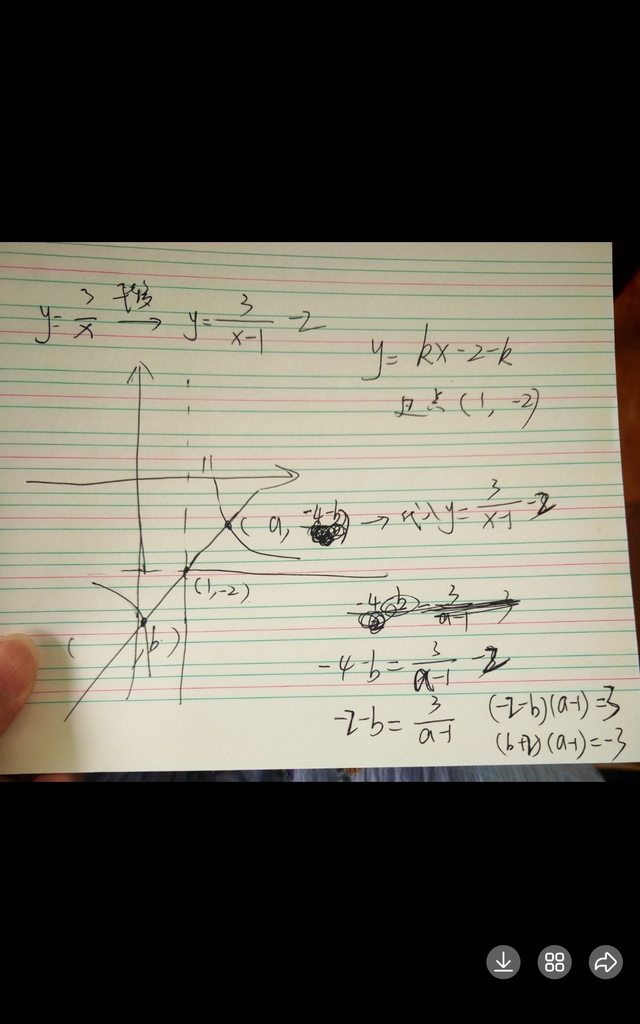 y=3/x 平移→ y=3/(x-1)-2
y=kx-2-k
过点(1,-2)
(a,-4-b)→代入y=3/(x-1)-2
(1,-2)
( ,b)
-4-b=3/(a-1)-2
-2-b=3/(a-1)
(-2-b)(a-1)=3
(b+2)(a-1)=-3